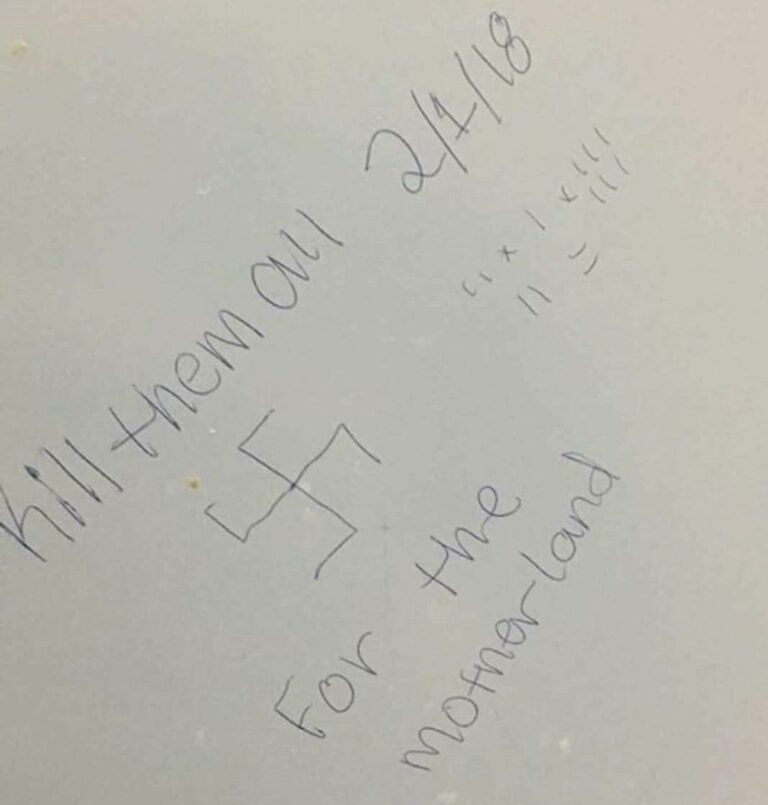 Kill them all 2/1/18
For the
motherland